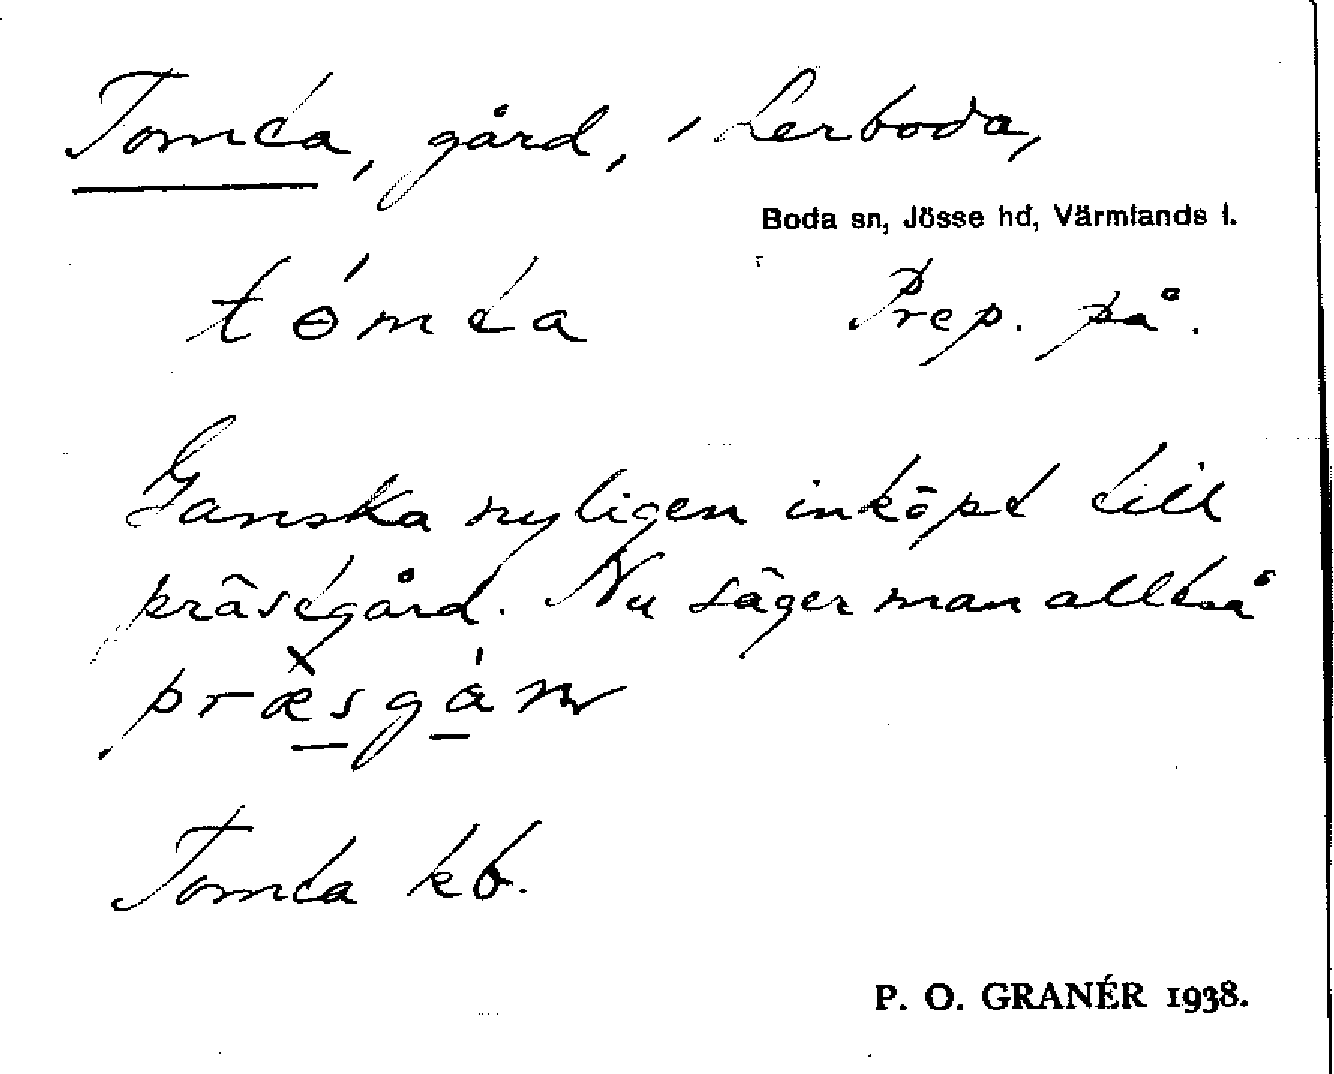 Tomta, gård, i Lerboda,
Boda sn, Jösse hd, Värmlands l.
tómta Prep. på.
Ganska nyligen inköpt till
prästgård. Nu säger man alltså
præsgán
Tomta kb.
P. O. GRANÉR 1938.